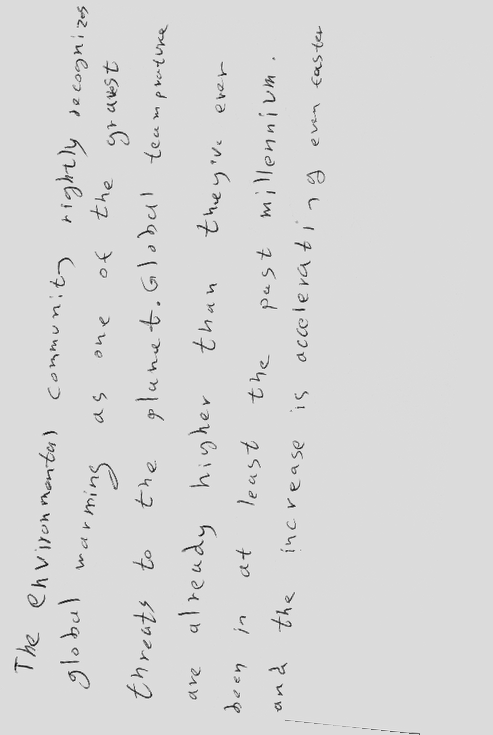 The environmental community rightly recognizes
global warming as one of the gravest
threats to the planet. Global teamprature
are already higher than they've ever
been in at least the past millennium.
and the increase is accelerating even easter